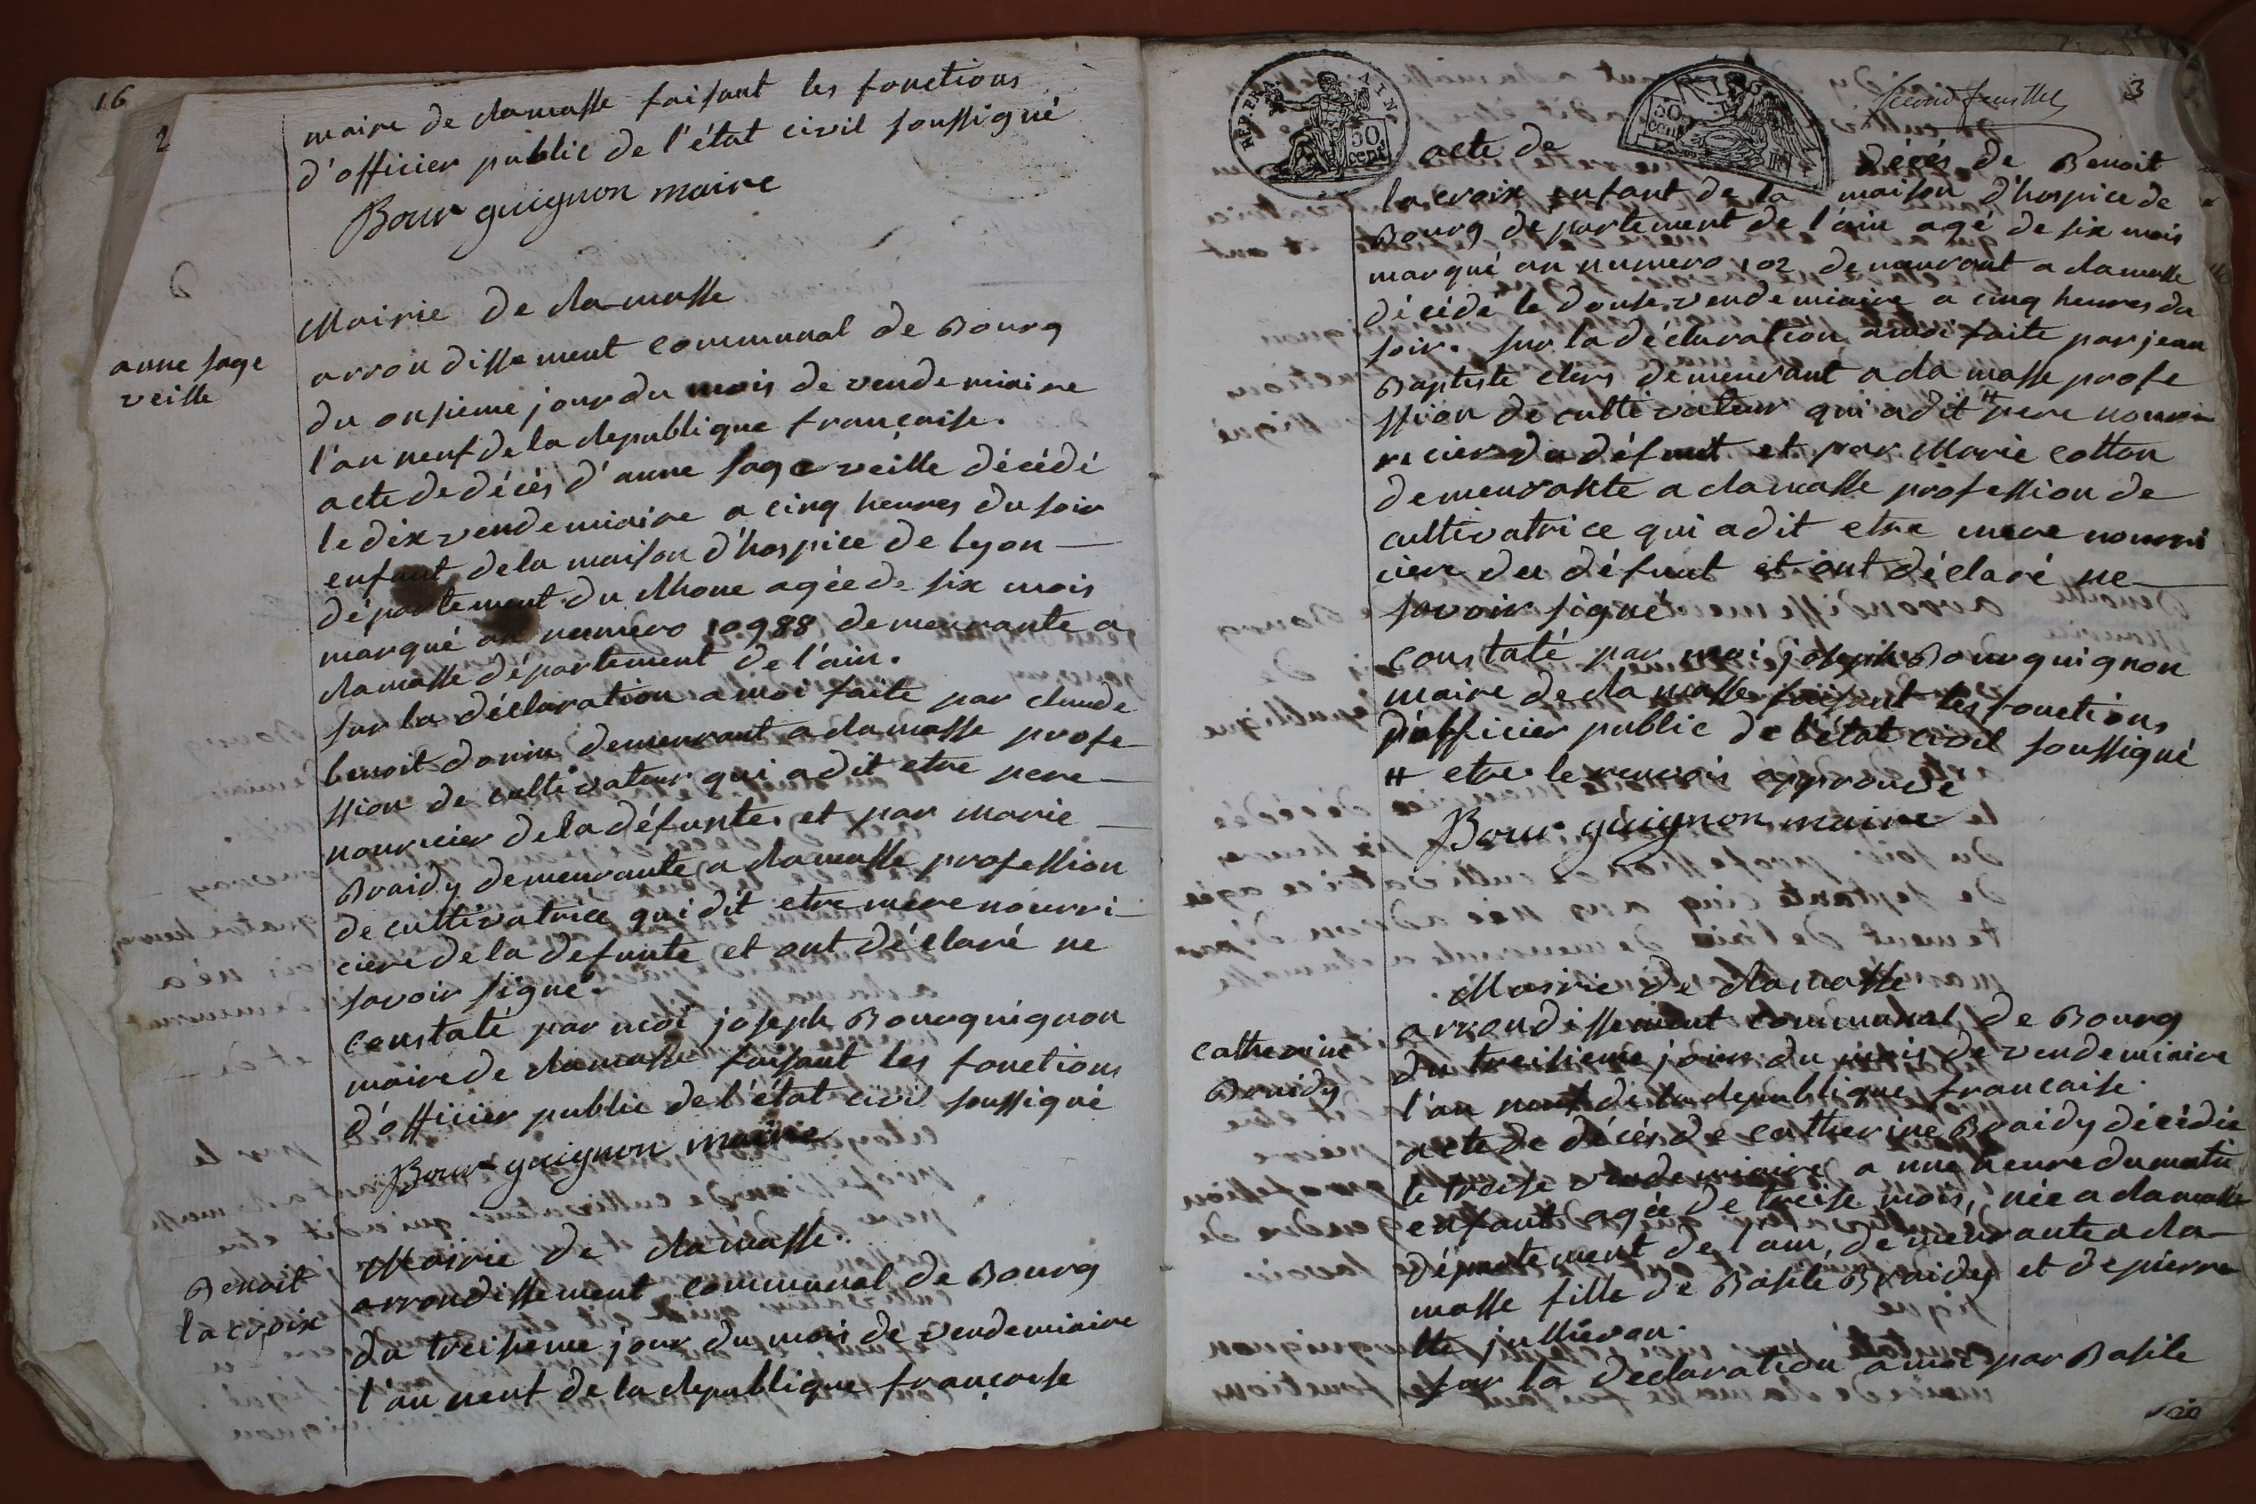 16
2
maire de Ramasse faisant les fonctions
d'officier public de l'état civil soussigné
Bourguignon maire
Mairie de Ramasse
anne sage
veille
arrondissement communal de Bourg
du onsieme jour du mois de vendemiaire
l'an neuf de la Republique française.
acte de décés d'anne sage veille décédé
le dix vendemiaire a cinq heures du soir
enfant de la maison d'hospice de Lyon
département du Rhone agée de six mois
marqué au numero 10988 demeurante a
Ramasse département de l'ain.
sur la déclaration a moi faite par claude
benoit donin demeurant a Ramasse profe
ssion de cultivateur qui a dit etre pere
nouricier de la défunte. et par marie
Braidy demeurante a Ramasse profession
de cultivatrice qui dit etre mère nourri
ciere de la defunte et ont déclaré ne
savoir signé.
constaté par moi joseph Bourguignon
maire de Ramasse faisant les fonctions
d'officier public de l'état civil soussigné
Bourguignon maire
Mairie de Ramasse.
Benoit
la croix
arrondissement communal de Bourg
du treisieme jour du mois de vendemiaire
l'an neuf de la Republique françoise
REP. FRA. AIN
50 cent
50 cent
second feuillet
3
acte de décés de Benoit
lacroix enfant de la maison d'hospice de
Bourg département de l'ain agé de six mois
marqué au numero 102 demeurant a Ramasse
décédé le douse vendemiaire a cinq heures du
soir. sur la déclaration a moi faite par jean
Baptiste clers demeurant a Ramasse profe
ssion de cultivateur qui a dit # pere nourri
ricier du défunt et par Marie cotton
demeurante a Ramasse profession de
cultivatrice qui a dit etre mere nourri
ciere du défunt et ont déclaré ne
savoir signé
constaté par moi joseph Bourguignon
maire de Ramasse faisant les fonctions
d'officier public de l'état civil soussigné
# etre le renvois approuvé
Bourguignon maire
Mairie de Ramasse
catherine
Braidy
arrondissement communal de Bourg
du treisieme jour du mois de vendemiaire
l'an neuf de la Republique francaise.
acte de décés de catherine Braidy décédée
le treise vendemiaire a une heure du matin
enfant agée de treise mois, née a Ramasse
département de l'ain, demeurante a Ra
masse fille de Basile Braidy et de pierre
tte jullieron.
sur la declaration a moi par Basile